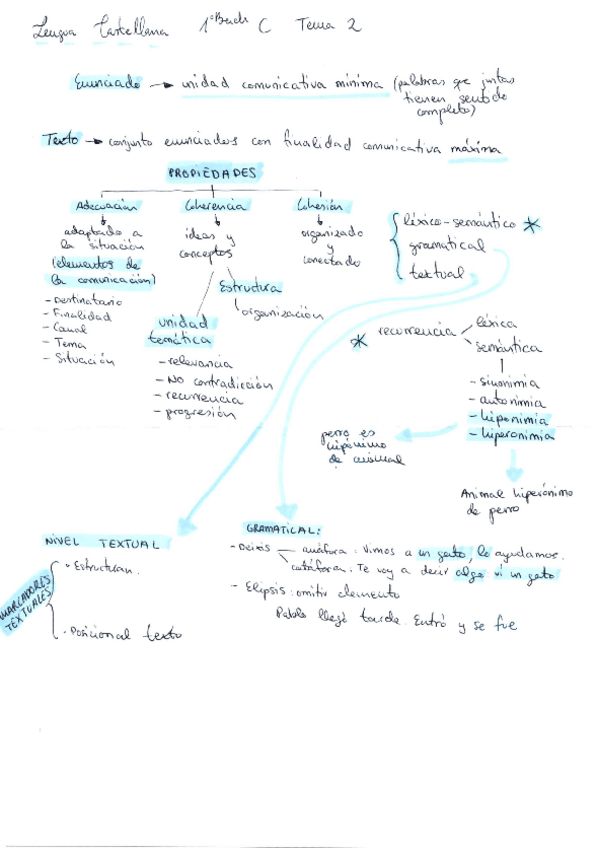 Lengua Castellana 1º Bach C Tema 2
Enunciado → unidad comunicativa mínima (palabras que juntas
tienen sentido
completo)
Texto → conjunto enunciados con finalidad comunicativa máxima
PROPIEDADES
Adecuación
adaptado a
la situación
(elementos de
la comunicación)
- Destinatario
- Finalidad
- Canal
- Tema
- Situación
Coherencia
ideas y
conceptos
Estrudura
organización
unidad
temática
- relevancia
- No contradicción
- recurrencia
- progresión
Cohesión
organizado
y
conectado
léxico-semántico *
gramatical
textual
* recurrencia
léxica
semántica
- sinonimia
- antonimia
- hiponimia
- hiperonimia
perro es
hipónimo
de animal
Animal hiperónimo
de perro
NIVEL TEXTUAL
MARCADORES
TEXTUALES
· Estructuran.
· Posicional texto
GRAMATICAL:
- Deixis — anáfora: Vimos a un gato, lo ayudamos.
catáfora: Te voy a decir algo vi un gato
- Elipsis: omitir elemento
Pablo llegó tarde. Entró y se fue